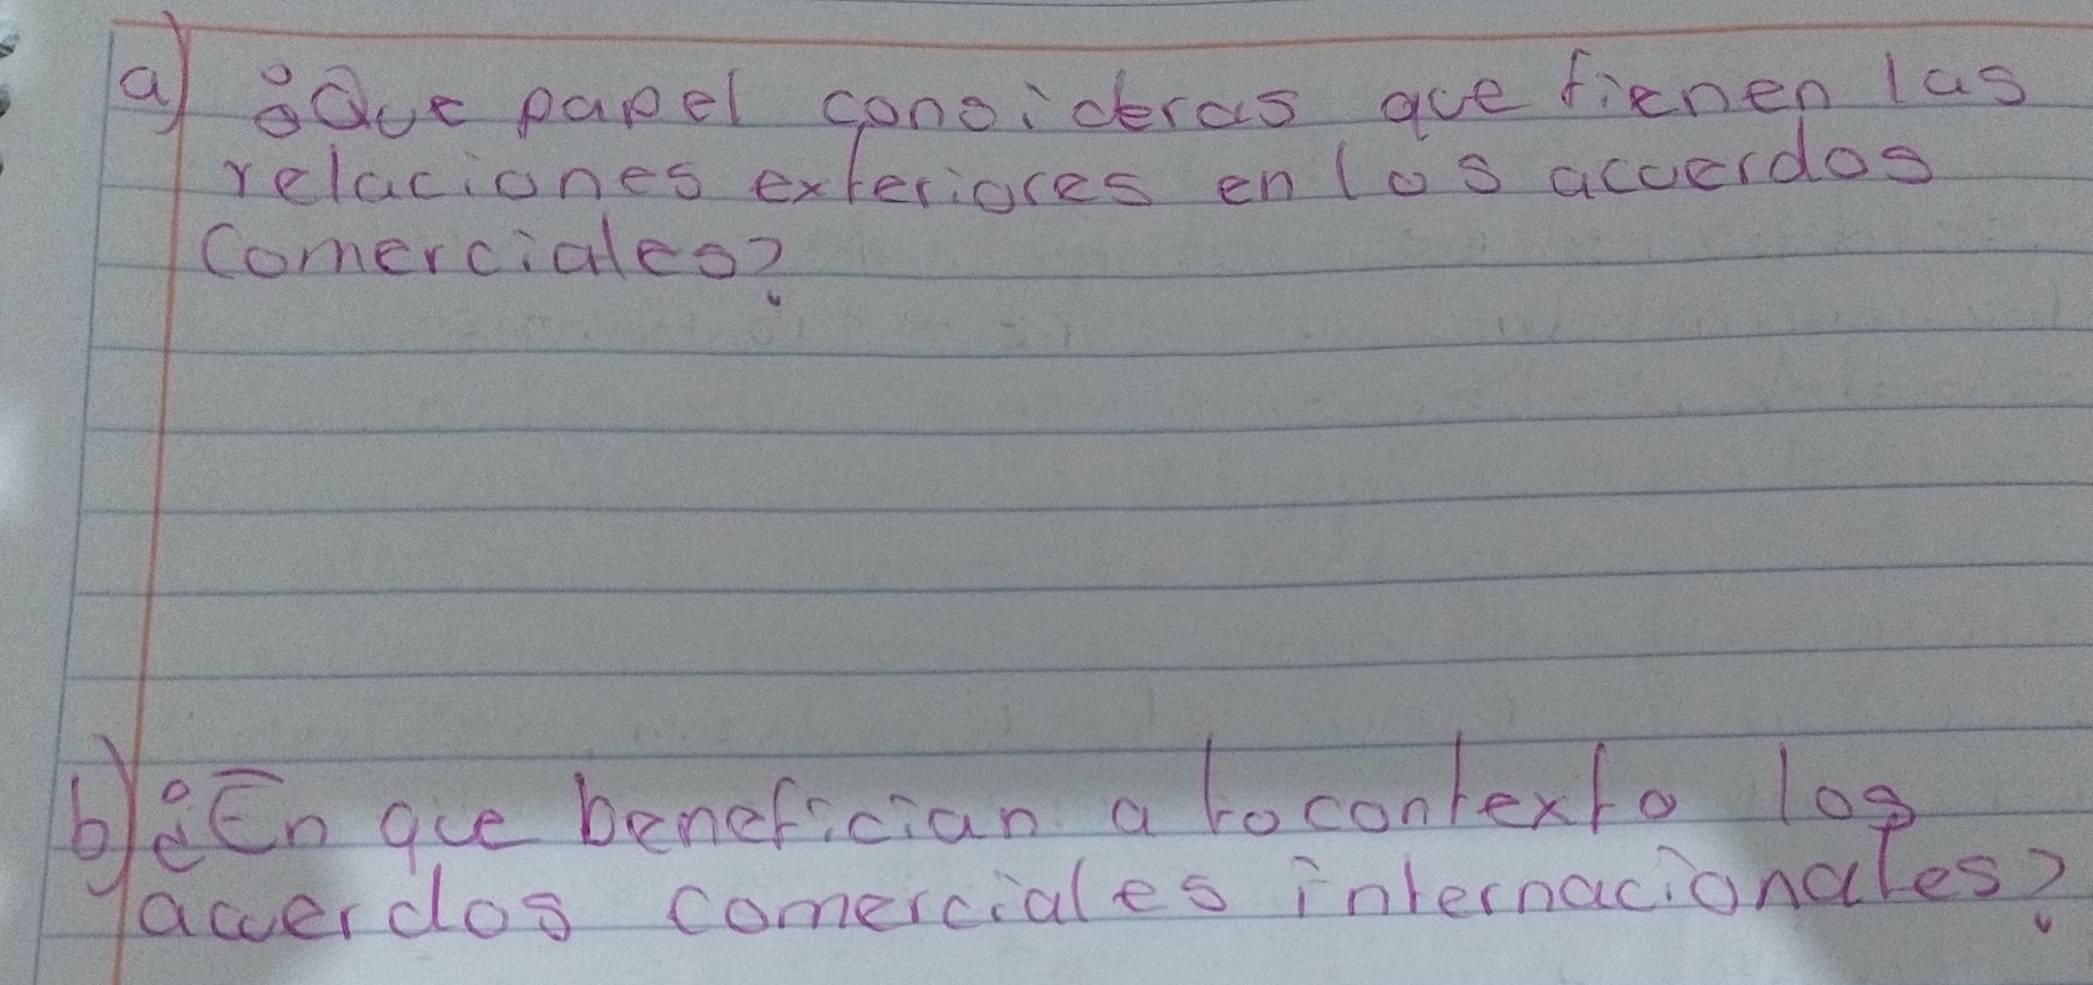 a) ¿Que papel consideras que tienen las
relaciones exteriores en los acuerdos
Comerciales?
b) ¿En que benefician a tocontexto los
acuerdos comerciales internacionales?